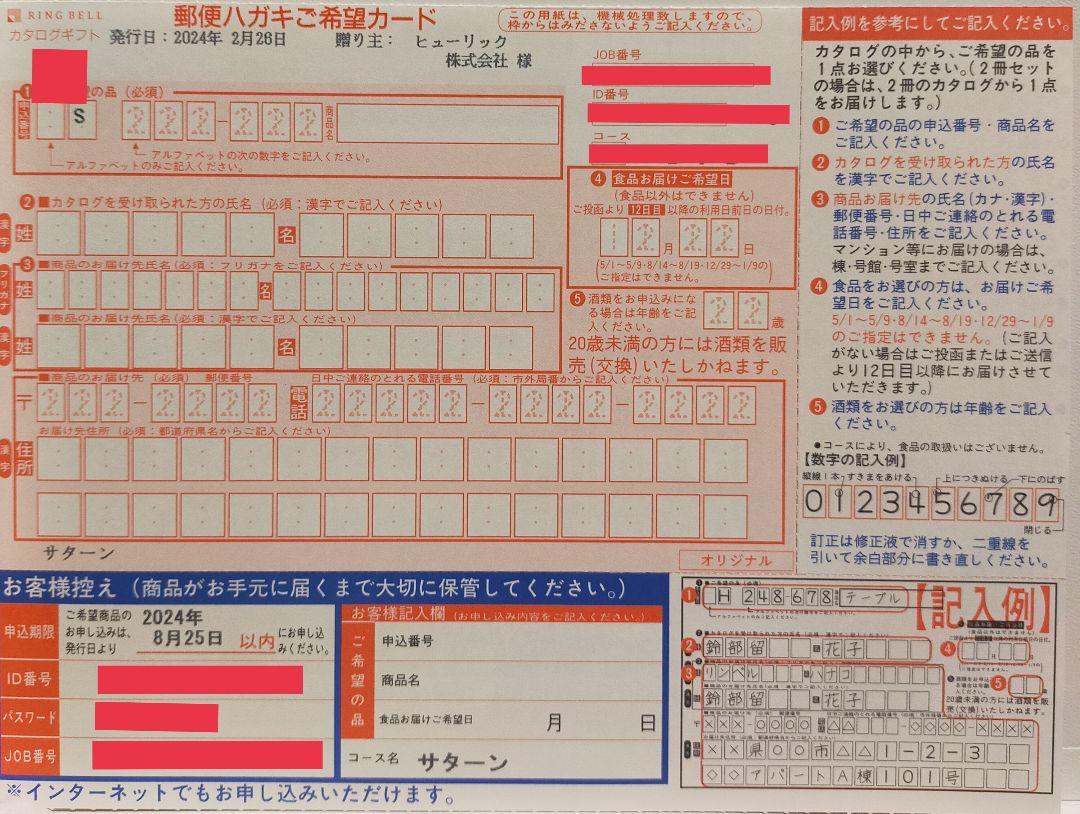 RING BELL
カタログギフト
郵便ハガキご希望カード
発行日：2024年 2月26日
贈り主： ヒューリック
株式会社 様
この用紙は、機械処理致しますので、
枠からはみださないようご記入ください。
JOB番号
ID番号
コース
❶
望の品（必須）
申込番号
S
商品名
アルファベットの次の数字をご記入ください。
アルファベットのみご記入ください。
❷ ■カタログを受け取られた方の氏名（必須：漢字でご記入ください）
漢字 姓 名
❸ ■商品のお届け先氏名(必須：フリガナをご記入ください）
フリガナ 姓 名
■商品のお届け先氏名（必須：漢字でご記入ください）
漢字 姓 名
❹ 食品お届けご希望日
(食品以外はできません)
ご投函より 12日目 以降の利用日前日の日付。
月 日
(5/1～5/9・8/14～8/19・12/29～1/9の
ご指定はできません。
❺ 酒類をお申込みにな
る場合は年齢をご記
入ください。
歳
20歳未満の方には酒類を販
売（交換）いたしかねます。
■商品のお届け先（必須） 郵便番号
日中ご連絡のとれる電話番号（必須：市外局番からご記入ください）
〒
電話
お届け先住所（必須：都道府県名からご記入ください）
漢字 住所
サターン
オリジナル
記入例を参考にしてご記入ください。
カタログの中から、ご希望の品を
１点お選びください。（２冊セット
の場合は、２冊のカタログから１点
をお届けします。）
❶ ご希望の品の申込番号・商品名を
ご記入ください。
❷ カタログを受け取られた方の氏名
を漢字でご記入ください。
❸ 商品お届け先の氏名（カナ・漢字）・
郵便番号・日中ご連絡のとれる電
話番号・住所をご記入ください。
マンション等にお届けの場合は、
棟・号館・号室までご記入ください。
❹ 食品をお選びの方は、お届けご希
望日をご記入ください。
5/1～5/9・8/14～8/19・12/29～1/9
のご指定はできません。（ご記入
がない場合はご投函またはご送信
より12日目以降にお届けさせて
いただきます。）
❺ 酒類をお選びの方は年齢をご記入
ください。
●コースにより、食品の取扱いはございません。
【数字の記入例】
縦線１本 すきまをあける 上につきぬける 下にのばす
0123456789
閉じる
訂正は修正液で消すか、二重線を
引いて余白部分に書き直しください。
お客様控え（商品がお手元に届くまで大切に保管してください。）
申込期限
ご希望商品の
お申し込みは、
発行日より
2024年
8月25日
以内
にお申し込
みください。
ID番号
パスワード
JOB番号
お客様記入欄（お申し込み内容をご記入ください。）
ご希望の品
申込番号
商品名
食品お届けご希望日
月 日
コース名 サターン
※インターネットでもお申し込みいただけます。
【記入例】
❶ H 248-678 テーブル
❷ 鈴部留 花子
❸ リンベル ハナコ
鈴部留 花子
❹
❺
20歳未満の方には酒類を販
売（交換）いたしかねます。
〒 ×××-○○○○ △△△-◇◇◇◇-××××
××県○○市△△1-2-3
◇◇アパートA棟101号